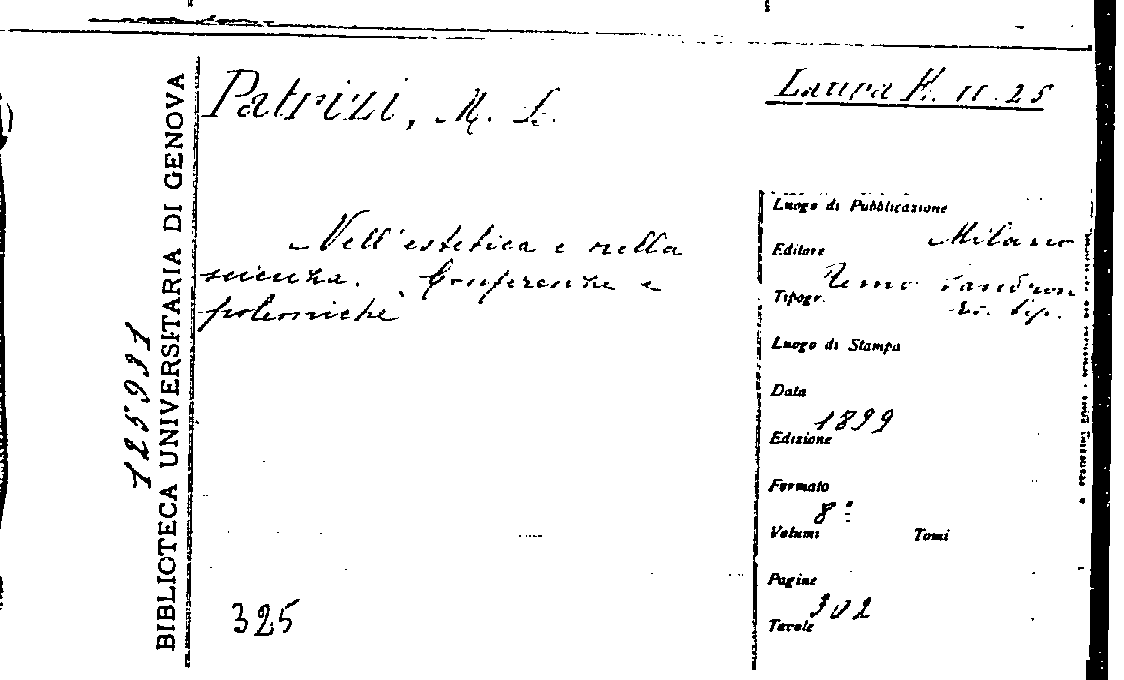 Patrizi, M. L.
Laura K. 11.25
Nell'estetica e nella
scienza. Conferenze e
polemiche
Luogo di Pubblicazione
Milano
Editore
Remo Sandron
Tipogr.
ed. tip.
Luogo di Stampa
Data
1899
Edizione
Formato
8°
Volumi Tomi
Pagine
302
Tavole
325
BIBLIOTECA UNIVERSITARIA DI GENOVA
125931